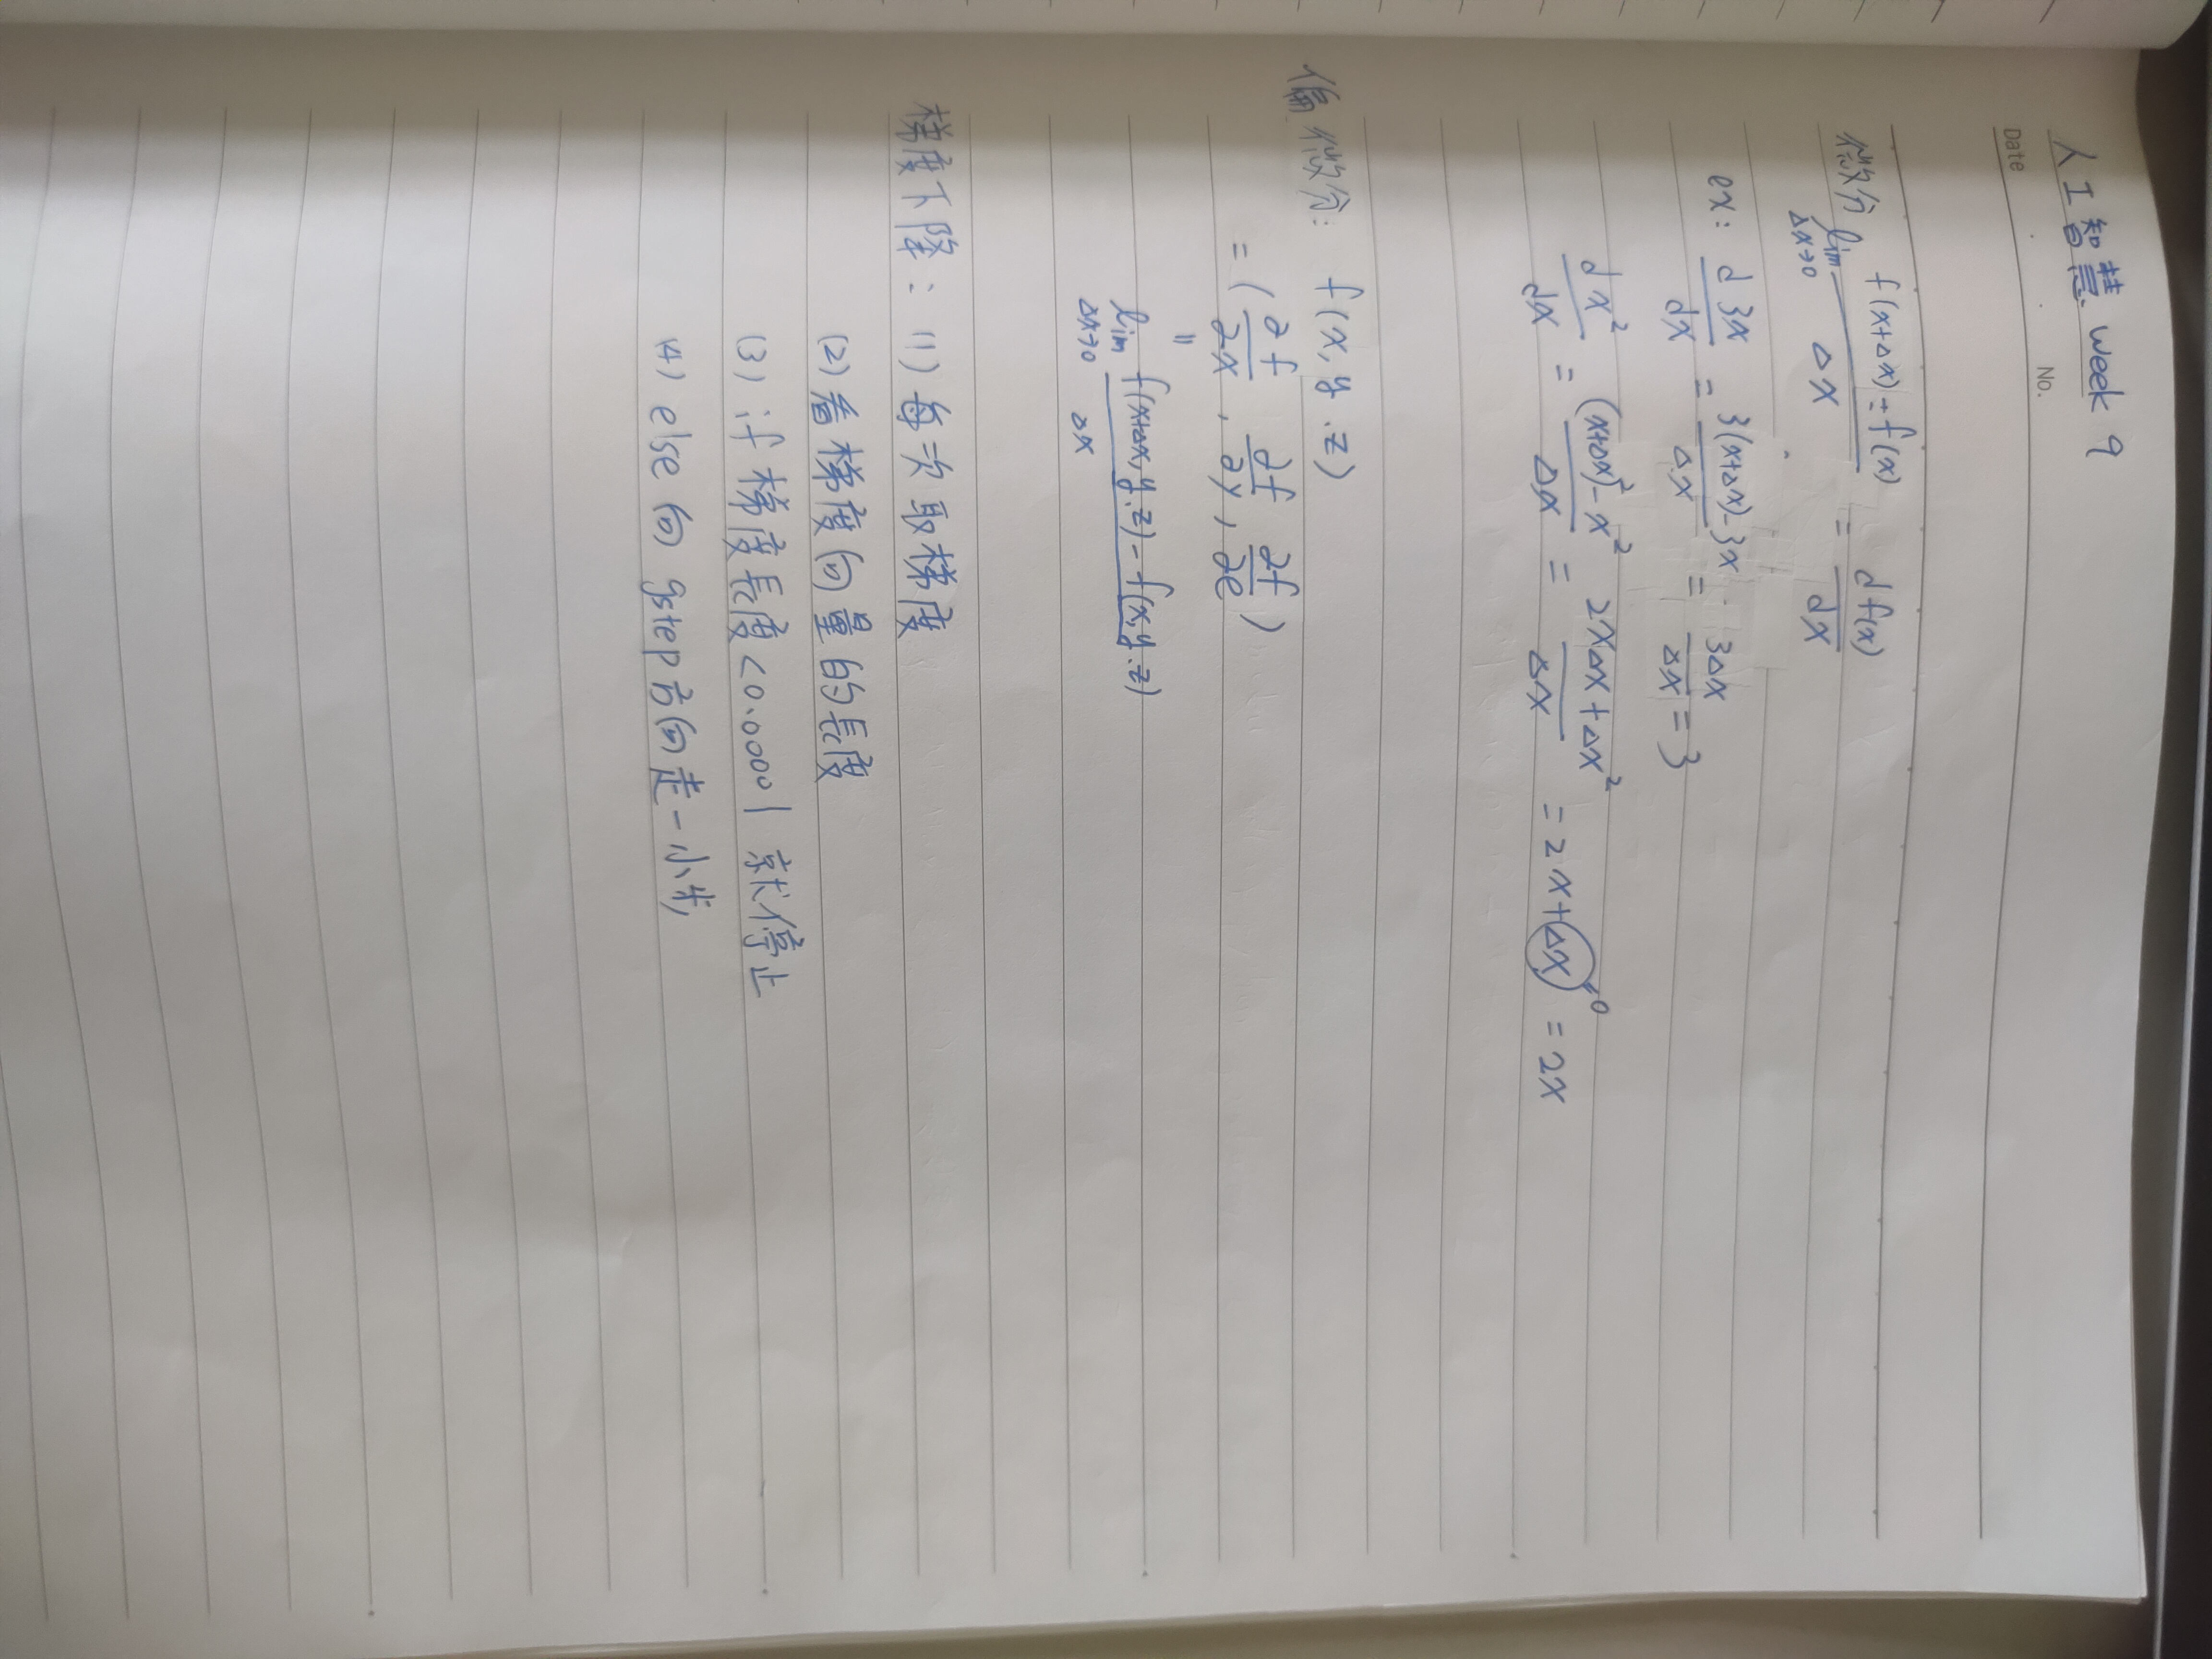 人工智慧 week 9
Date . . No.
微分 lim Δx→0 f(x+Δx)-f(x) / Δx = d f(x) / dx
ex: d 3x / dx = 3(x+Δx)-3x / Δx = 3Δx / Δx = 3
d x² / dx = (x+Δx)²-x² / Δx = 2xΔx+Δx² / Δx = 2x+Δx→0 = 2x
偏微分: f(x,y.z)
= (∂f/∂x , ∂f/∂y, ∂f/∂e)
=
lim Δx→0 f(x+Δx,y.z)-f(x,y.z) / Δx
梯度下降: (1) 每次取梯度
(2) 看梯度向量的長度
(3) if 梯度長度<0.00001 就停止
(4) else 向 gstep方向走一小步